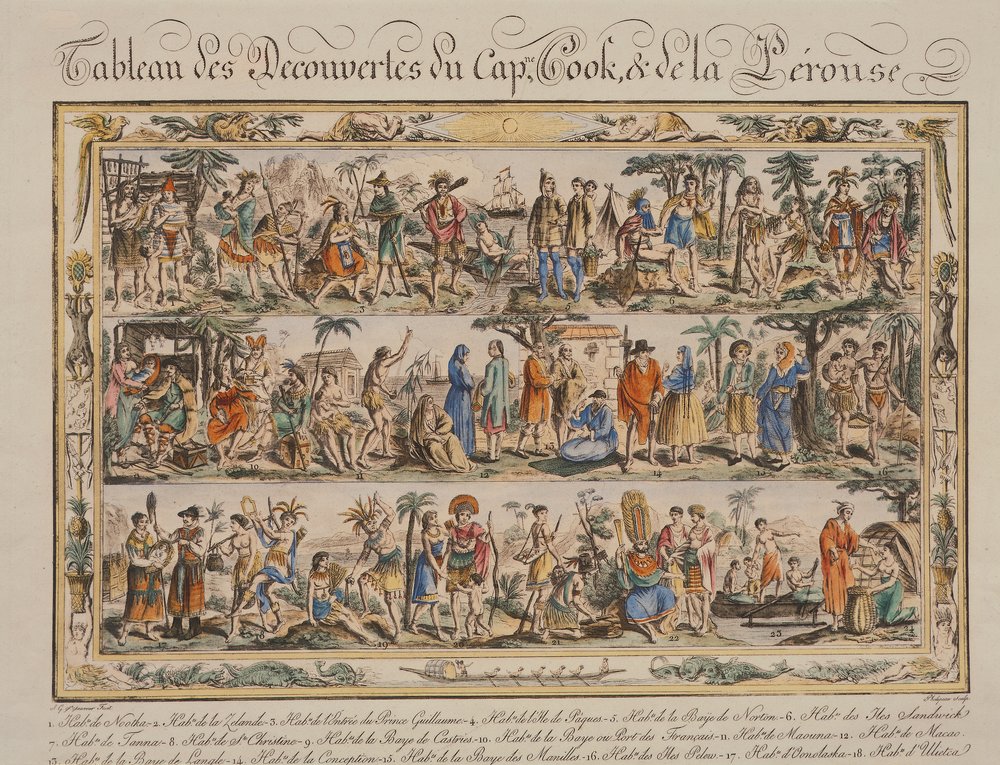 Tableau des Decouvertes du Cap.ne Cook, & de la Pérouse.
1. Hab.s de Nootka.- 2. Hab.s de la Zelande.- 3. Hab.s de l'Entrée du Prince Guillaume.- 4. Hab.s de l'Ile de Pâques.- 5. Hab.s de la Baije de Norton.- 6. Hab.s des Iles Sandwich
7. Hab.s de Tanna.- 8. Hab.s de S.te Christine.- 9. Hab.s de la Baye de Castries.- 10. Hab.s de la Baye ou Port des Français.- 11. Hab.s de Maouna.- 12. Hab.s de Macao.
13. Hab.s de la Baye de Langle.- 14. Hab.s de la Conception.- 15. Hab.s de la Baye des Manilles.- 16. Hab.s des Iles Pelew.- 17. Hab.s d'Oonolaska.- 18. Hab.s d'Ulietea
3
6
10
11
12
13
14
16
17
19
21
22
23